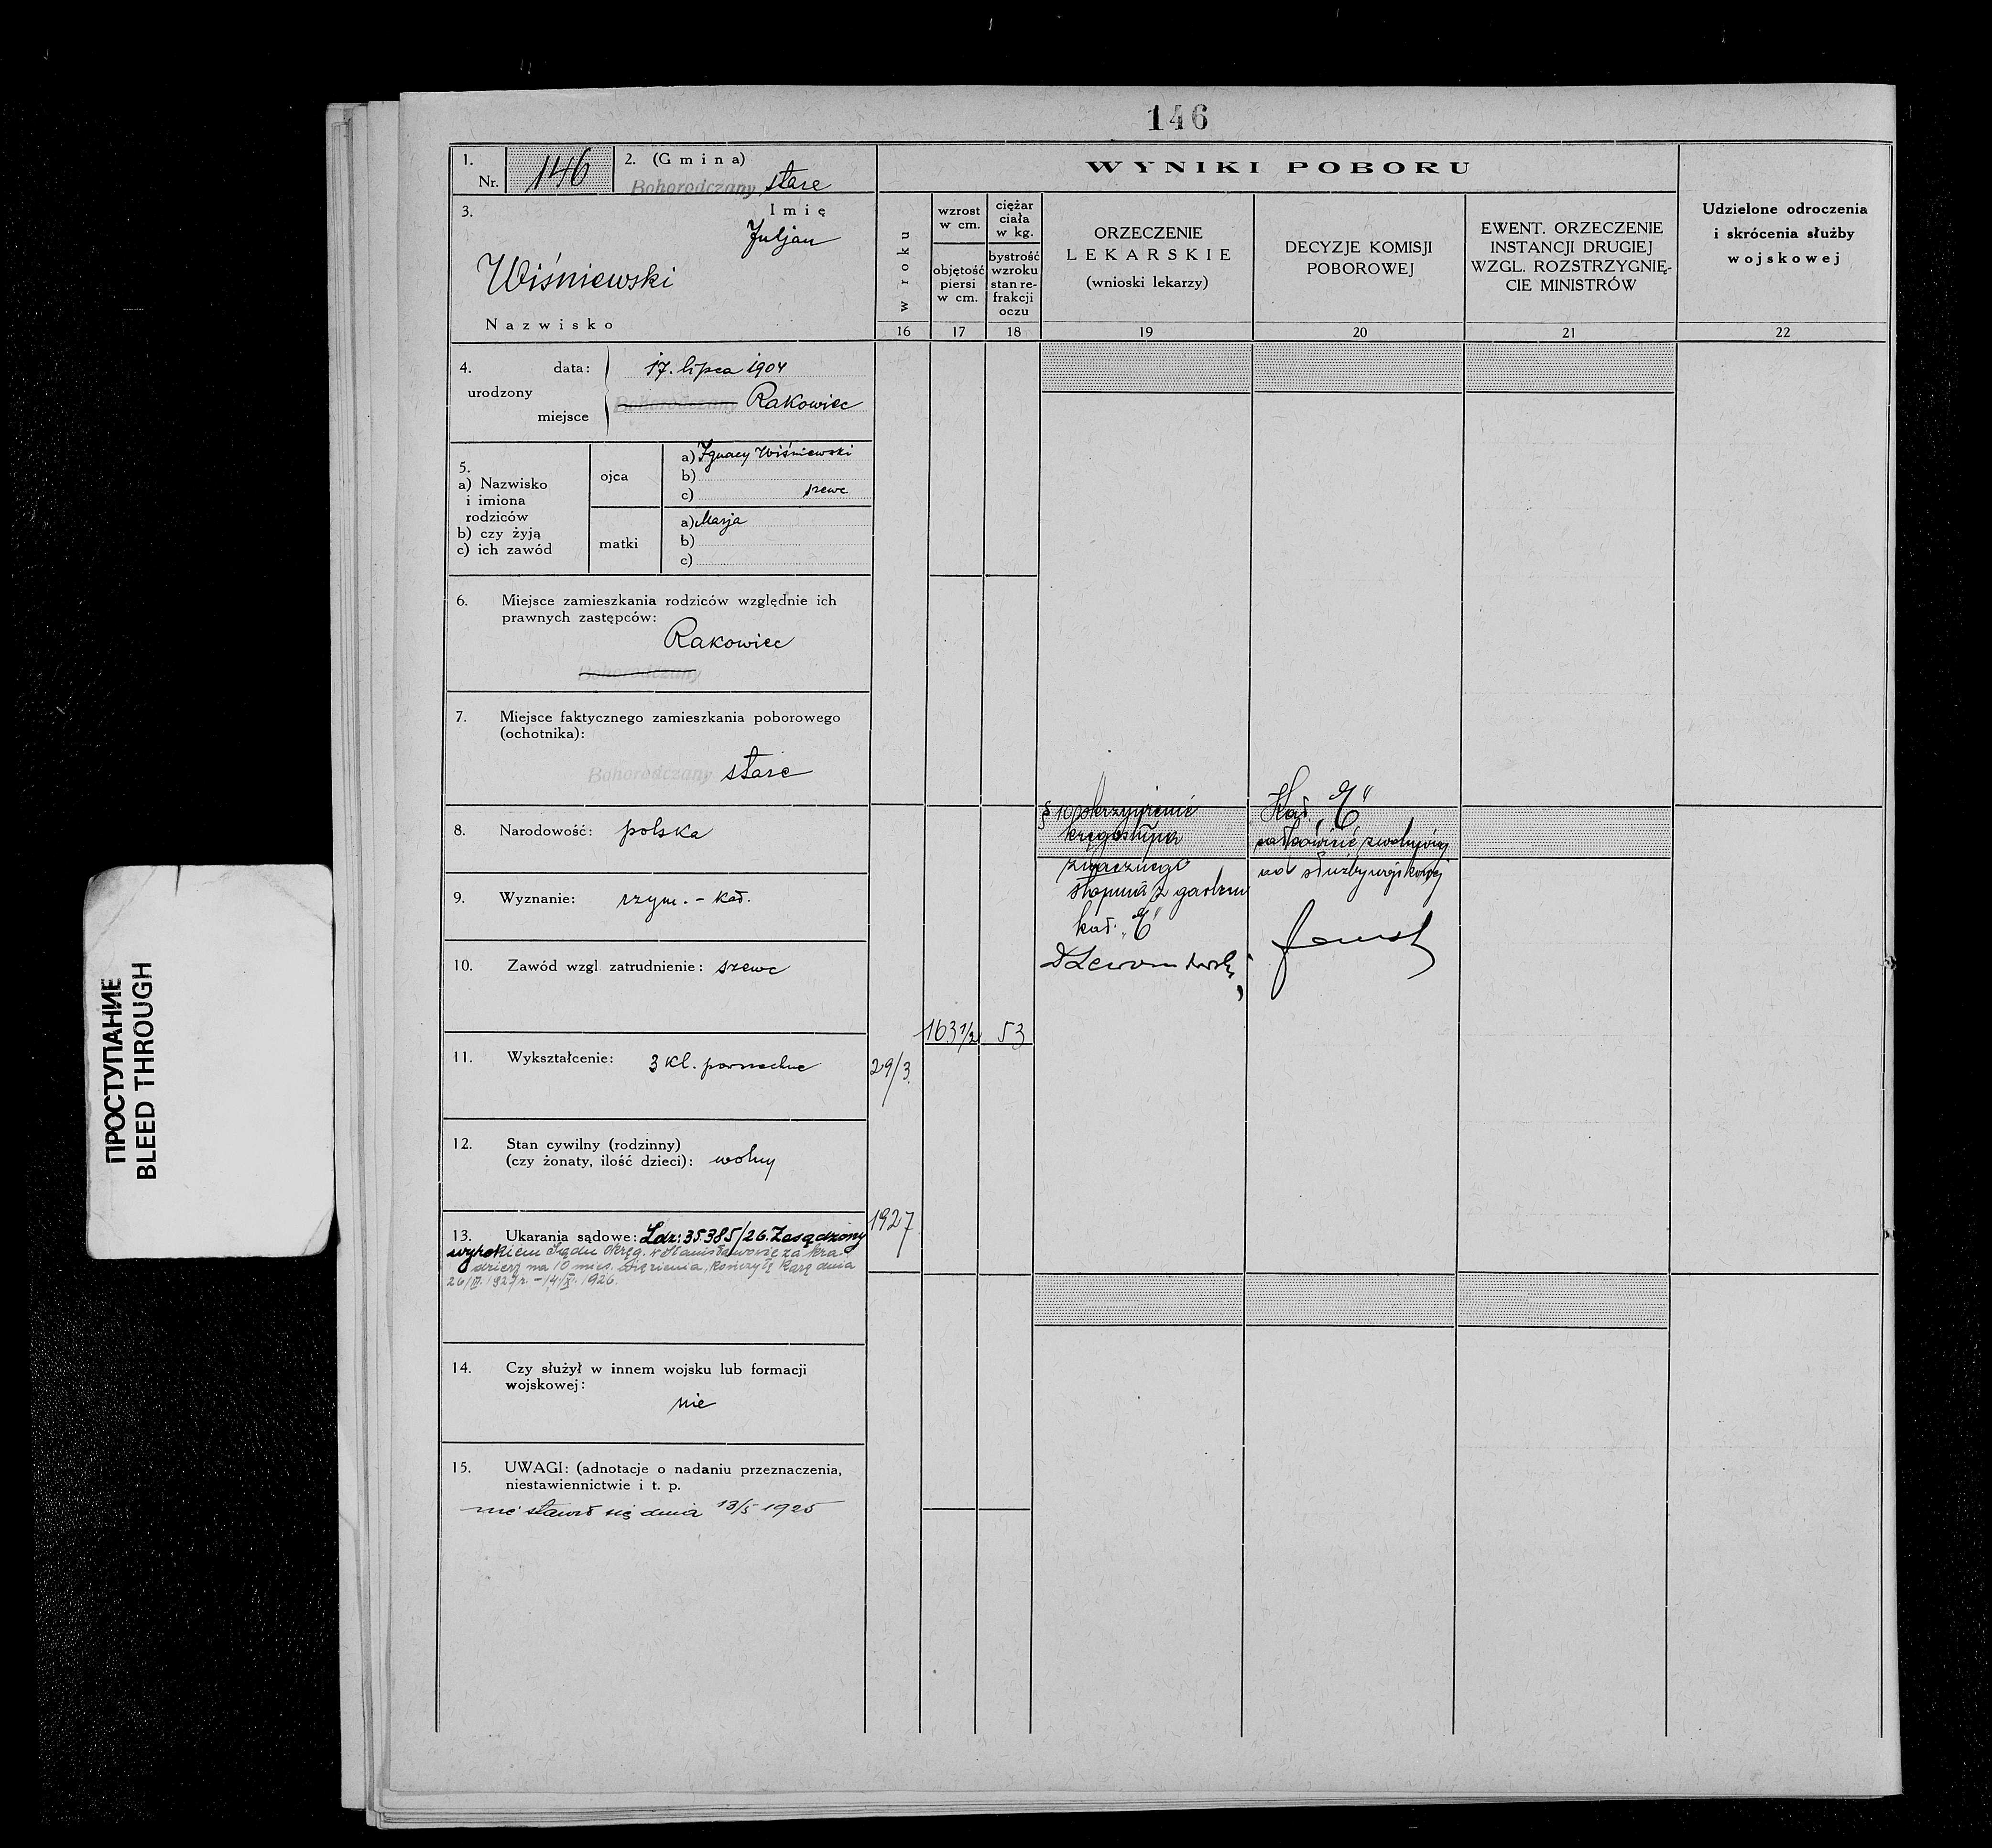 146
1.
Nr. 146
2. (Gmina)
Bohorodczany stare
3.
Imię
Juljan
Wiśniewski
Nazwisko
4.
urodzony
data: 17. lipca 1904
miejsce Bohorodczany Rakowiec
5.
a) Nazwisko
i imiona
rodziców
b) czy żyją
c) ich zawód
ojca
a) Ignacy Wiśniewski
b)
c) szewc
matki
a) Marja
b)
c)
6. Miejsce zamieszkania rodziców względnie ich
prawnych zastępców:
Rakowiec
Bohorodczany
7. Miejsce faktycznego zamieszkania poborowego
(ochotnika):
Bohorodczany stare
8. Narodowość: polska
9. Wyznanie: rzym. - kat.
10. Zawód wzgl. zatrudnienie: szewc
11. Wykształcenie: 3 kl. powszechne
12. Stan cywilny (rodzinny)
(czy żonaty, ilość dzieci): wolny
13. Ukarania sądowe: Ldz: 35385/26. Zasądzony
wyrokiem Sądu Okręg. w Stanisławowie za kra
dzież na 10 mies. więzienia, kończy tę karę dnia
1926.
14. Czy służył w innem wojsku lub formacji
wojskowej:
nie
15. UWAGI: (adnotacje o nadaniu przeznaczenia,
niestawiennictwie i t. p.
nie stawił się dnia 13/5 1925
WYNIKI POBORU
w roku
16
wzrost
w cm.
objętość
piersi
w cm.
17
ciężar
ciała
w kg.
bystrość
wzroku
stan re-
frakcji
oczu
18
ORZECZENIE
LEKARSKIE
(wnioski lekarzy)
19
DECYZJE KOMISJI
POBOROWEJ
20
EWENT. ORZECZENIE
INSTANCJI DRUGIEJ
WZGL. ROZSTRZYGNIĘ-
CIE MINISTRÓW
21
Udzielone odroczenia
i skrócenia służby
wojskowej
22
29/3.
1927
163 1/2
53
skrzywienie
kręgosłupa
znacznego
stopnia z garbem
kat. „E"
Kat. „E"
całkowicie zwolniony
od służby wojskowej
ПРОСТУПАНИЕ
BLEED THROUGH